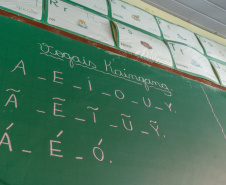 Vogais Kaingang
A _ E _ I _ O _ U _ Y.
Ã _ Ẽ _ Ĩ _ Ũ _ Ỹ.
Á _ É _ Ó.